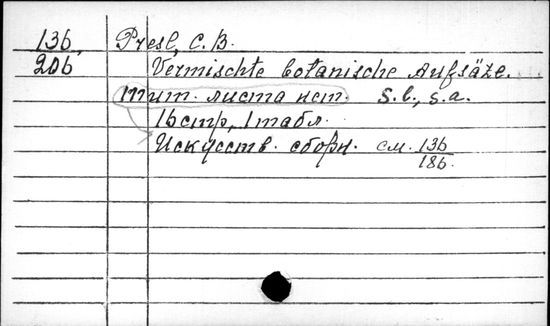 136, Presl, C. B.
206 Vermischte botanische Aufsäze.
тит. листа нет. S. l., s. a.
16 стр, 1 табл.
Искусств. сборн. см. 136
186.